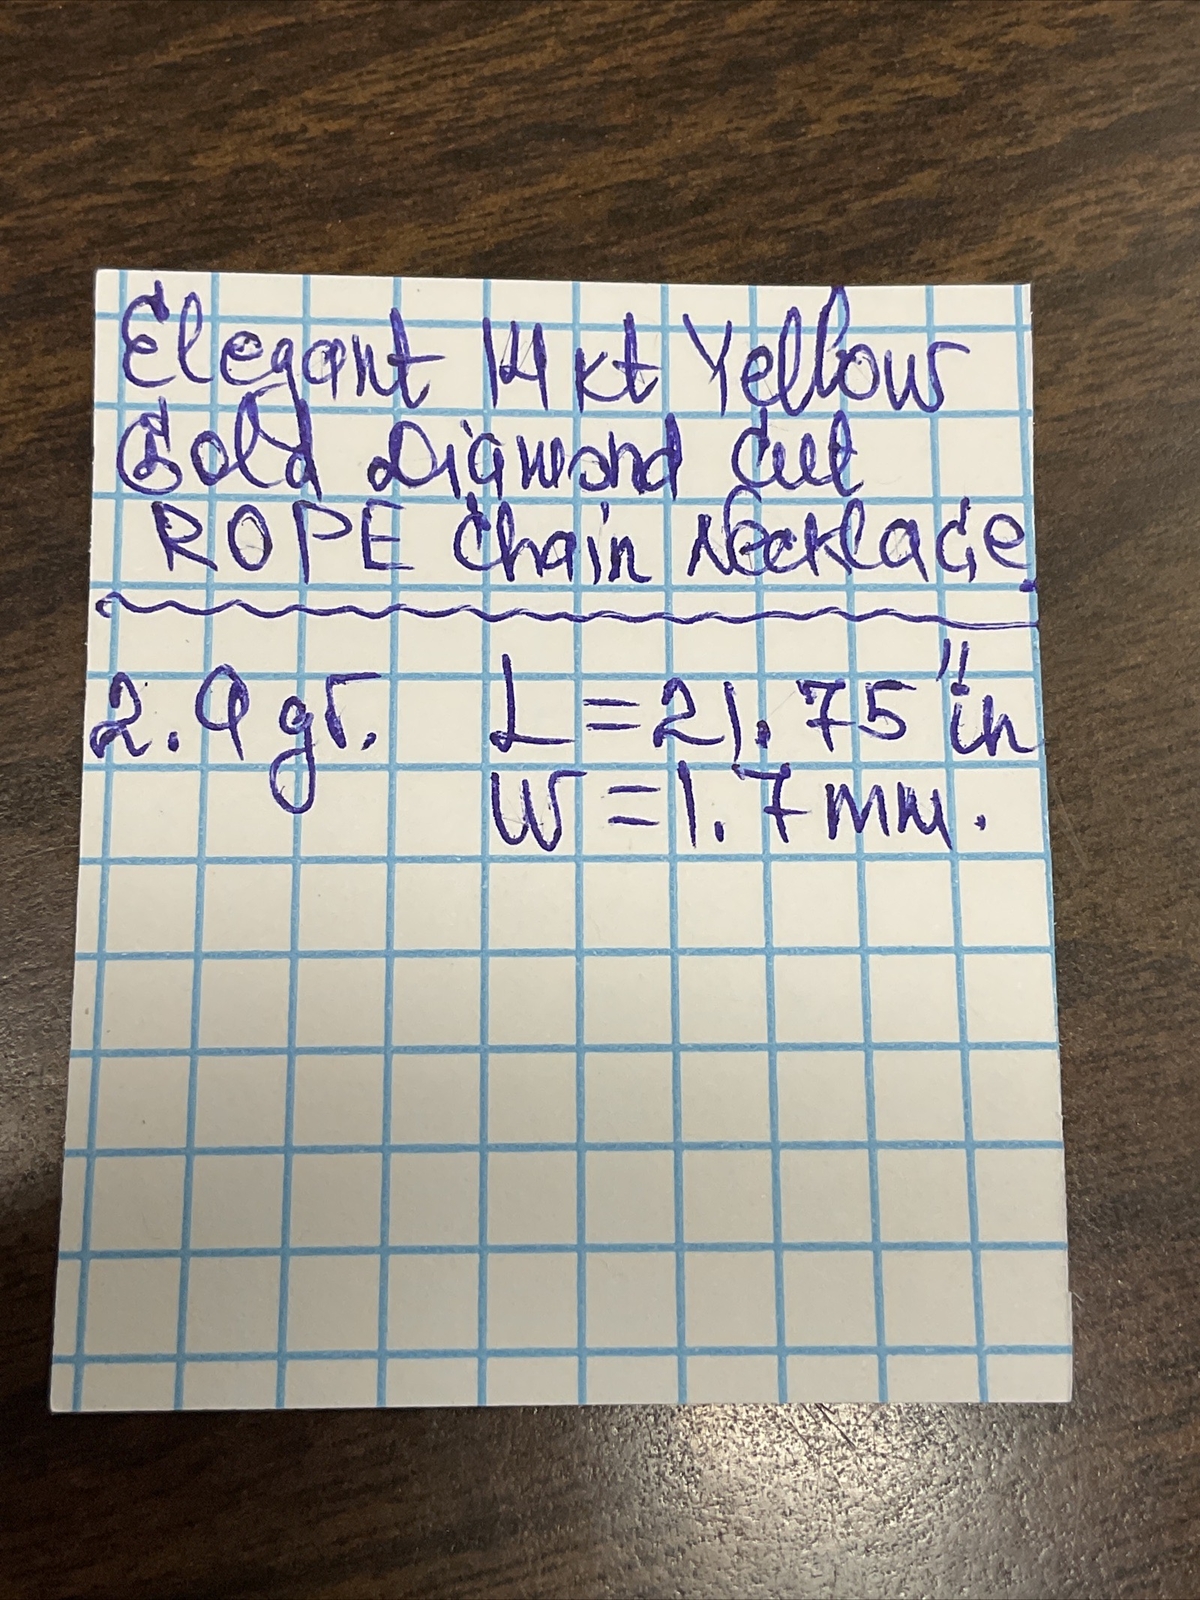 Elegant 14 kt Yellow
Gold Diamond Cut
ROPE Chain Necklace
2.9 gr. L = 21.75" in
W = 1.7 mm.